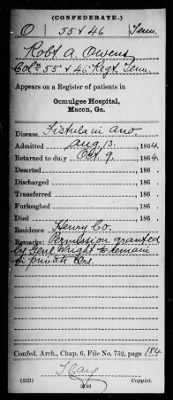 (CONFEDERATE.)
O 55 & 46 Tenn.
Robt A. Owens
Co. 55 & 46 Regt. Tenn.
Appears on a Register of patients in
Ocmulgee Hospital,
Macon, Ga.
Disease Fistula in ano
Admitted Aug. 13. , 1864.
Returned to duty Oct. 9. , 1864.
Deserted , 186 .
Discharged , 186 .
Transferred , 186 .
Furloughed , 186 .
Died , 186 .
Residence Henry Co.
Remarks: Permission granted
by Genl Wright to remain
in private Qrs.
Confed. Arch., Chap. 6, File No. 752, page 184
Copyist.